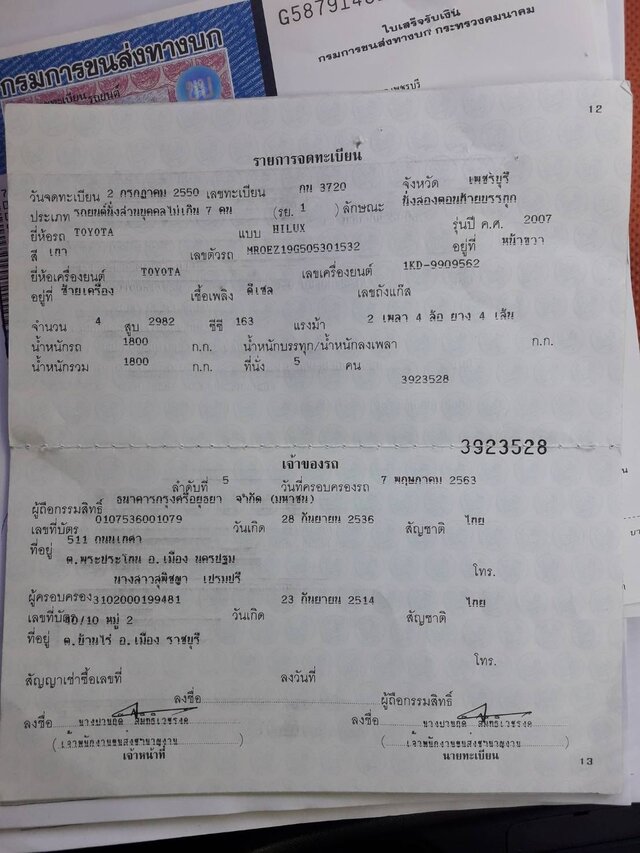 กรมการขนส่งทางบก
ใบเสร็จรับเงิน
กรมการขนส่งทางบก กระทรวงคมนาคม
12
รายการจดทะเบียน
วันจดทะเบียน 2 กรกฎาคม 2550 เลขทะเบียน กน 3720 จังหวัด เพชรบุรี
ประเภท รถยนต์นั่งส่วนบุคคลไม่เกิน 7 คน (รย. 1 ) ลักษณะ นั่งสองตอนท้ายบรรทุก
ยี่ห้อรถ TOYOTA แบบ HILUX รุ่นปี ค.ศ. 2007
สี เทา เลขตัวรถ MR0EZ19G505301532 อยู่ที่ หน้าขวา
ยี่ห้อเครื่องยนต์ TOYOTA เลขเครื่องยนต์ 1KD-9909562
อยู่ที่ ซ้ายเครื่อง เชื้อเพลิง ดีเซล เลขถังแก๊ส
จำนวน 4 สูบ 2982 ซีซี 163 แรงม้า 2 เพลา 4 ล้อ ยาง 4 เส้น
น้ำหนักรถ 1800 ก.ก. น้ำหนักบรรทุก/น้ำหนักลงเพลา ก.ก.
น้ำหนักรวม 1800 ก.ก. ที่นั่ง 5 คน
3923528
3923528
เจ้าของรถ
ลำดับที่ 5 วันที่ครอบครองรถ 7 พฤษภาคม 2563
ผู้ถือกรรมสิทธิ์ ธนาคารกรุงศรีอยุธยา จำกัด (มหาชน)
เลขที่บัตร 0107536001079 วันเกิด 28 กันยายน 2536 สัญชาติ ไทย
ที่อยู่ 511 ถนนเทศา
ต.พระประโทน อ.เมือง นครปฐม โทร.
ผู้ครอบครอง นางสาวสุพิชญา เปรมปรี
เลขที่บัตร 3102000199481 วันเกิด 23 กันยายน 2514 สัญชาติ ไทย
ที่อยู่ 50/10 หมู่ 2
ต.บ้านไร่ อ.เมือง ราชบุรี
โทร.
สัญญาเช่าซื้อเลขที่ ลงวันที่
ลงชื่อ ผู้ถือกรรมสิทธิ์
ลงชื่อ ลงชื่อ
(เจ้าพนักงานขนส่งชำนาญงาน) (เจ้าพนักงานขนส่งชำนาญงาน)
เจ้าหน้าที่ นายทะเบียน
13